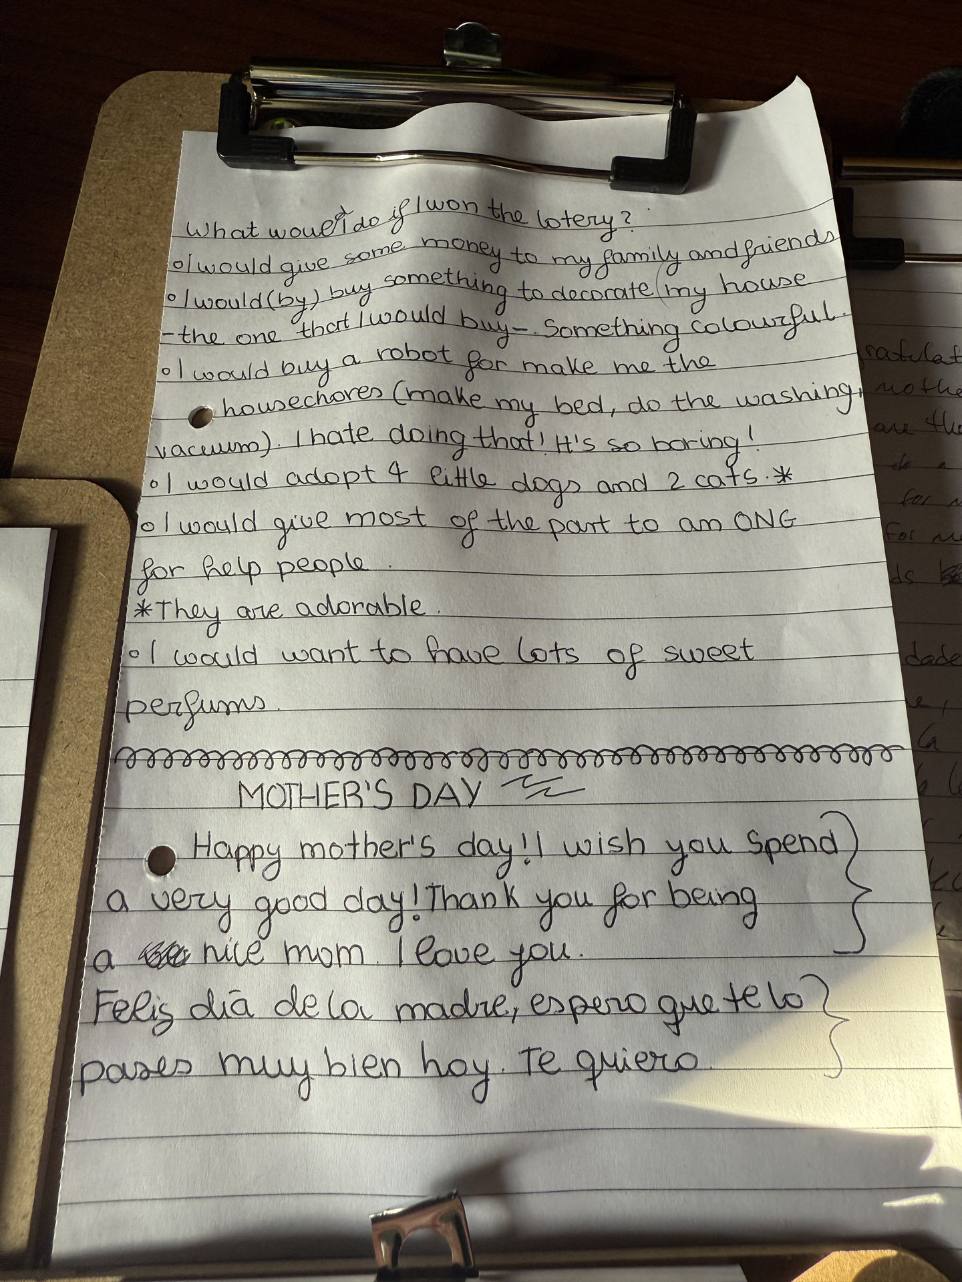 What would I do if I won the lotery?
o I would give some money to my family and friends
o I would (by) buy something to decorate (my house
- the one that I would buy -. Something colourful.
o I would buy a robot for make me the
housechores (make my bed, do the washing,
vacuum). I hate doing that! It's so boring!
o I would adopt 4 little dogs and 2 cats. *
o I would give most of the part to an ONG
for help people.
* They are adorable.
o I would want to have lots of sweet
perfums.
MOTHER'S DAY
Happy mother's day! I wish you spend
a very good day! Thank you for being
a nice mom. I love you.
Felis día de la madre, espero que te lo
pases muy bien hoy. Te quiero.
are the
for m
For me